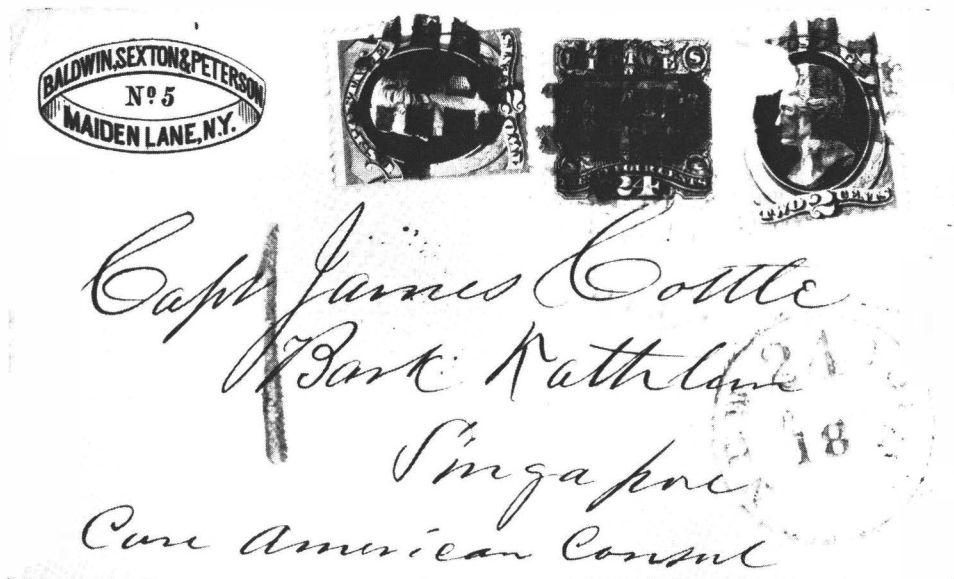 BALDWIN, SEXTON & PETERSON
Nº 5
MAIDEN LANE, N.Y.
TWO 2 CENTS
24
TWO 2 CENTS
Capt James Cottle
Bark Kathleen
Singapore
Care American Consul
24
18